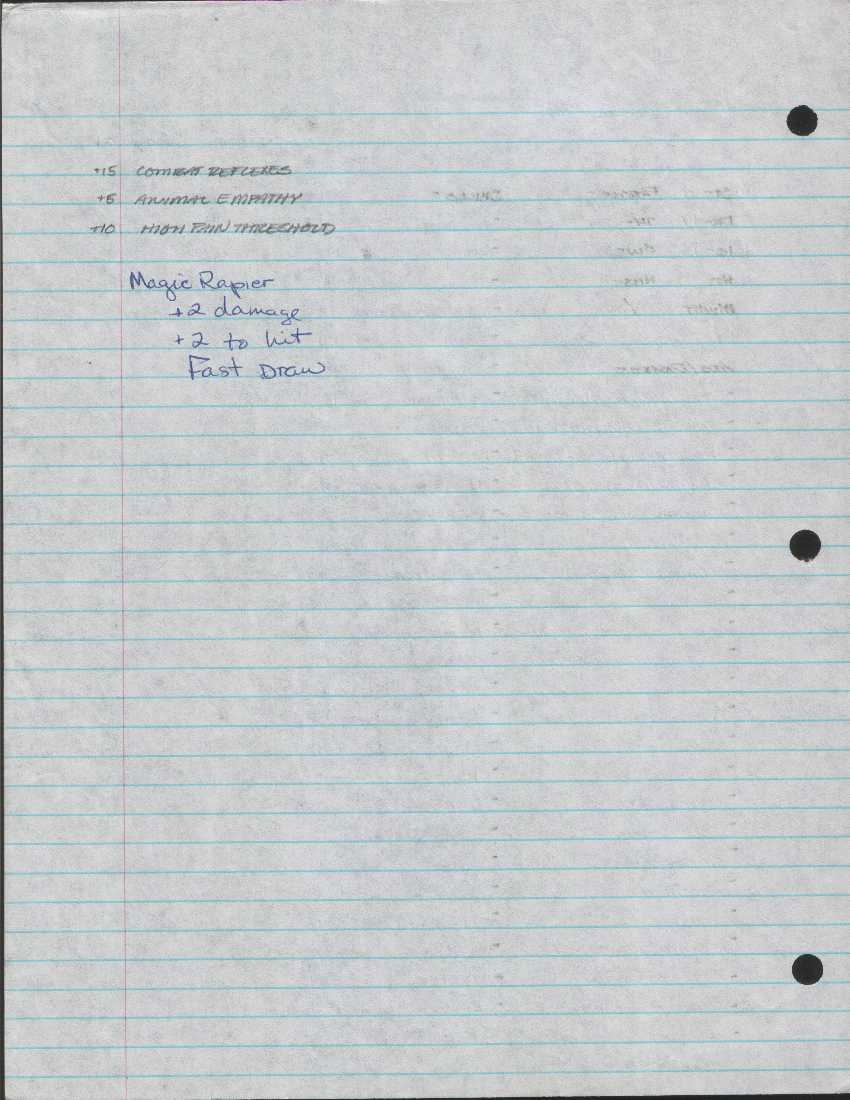 +15 COMBAT REFLEXES
+5 ANIMAL EMPATHY
+10 HIGH PAIN THRESHOLD
Magic Rapier
+2 damage
+2 to hit
Fast Draw